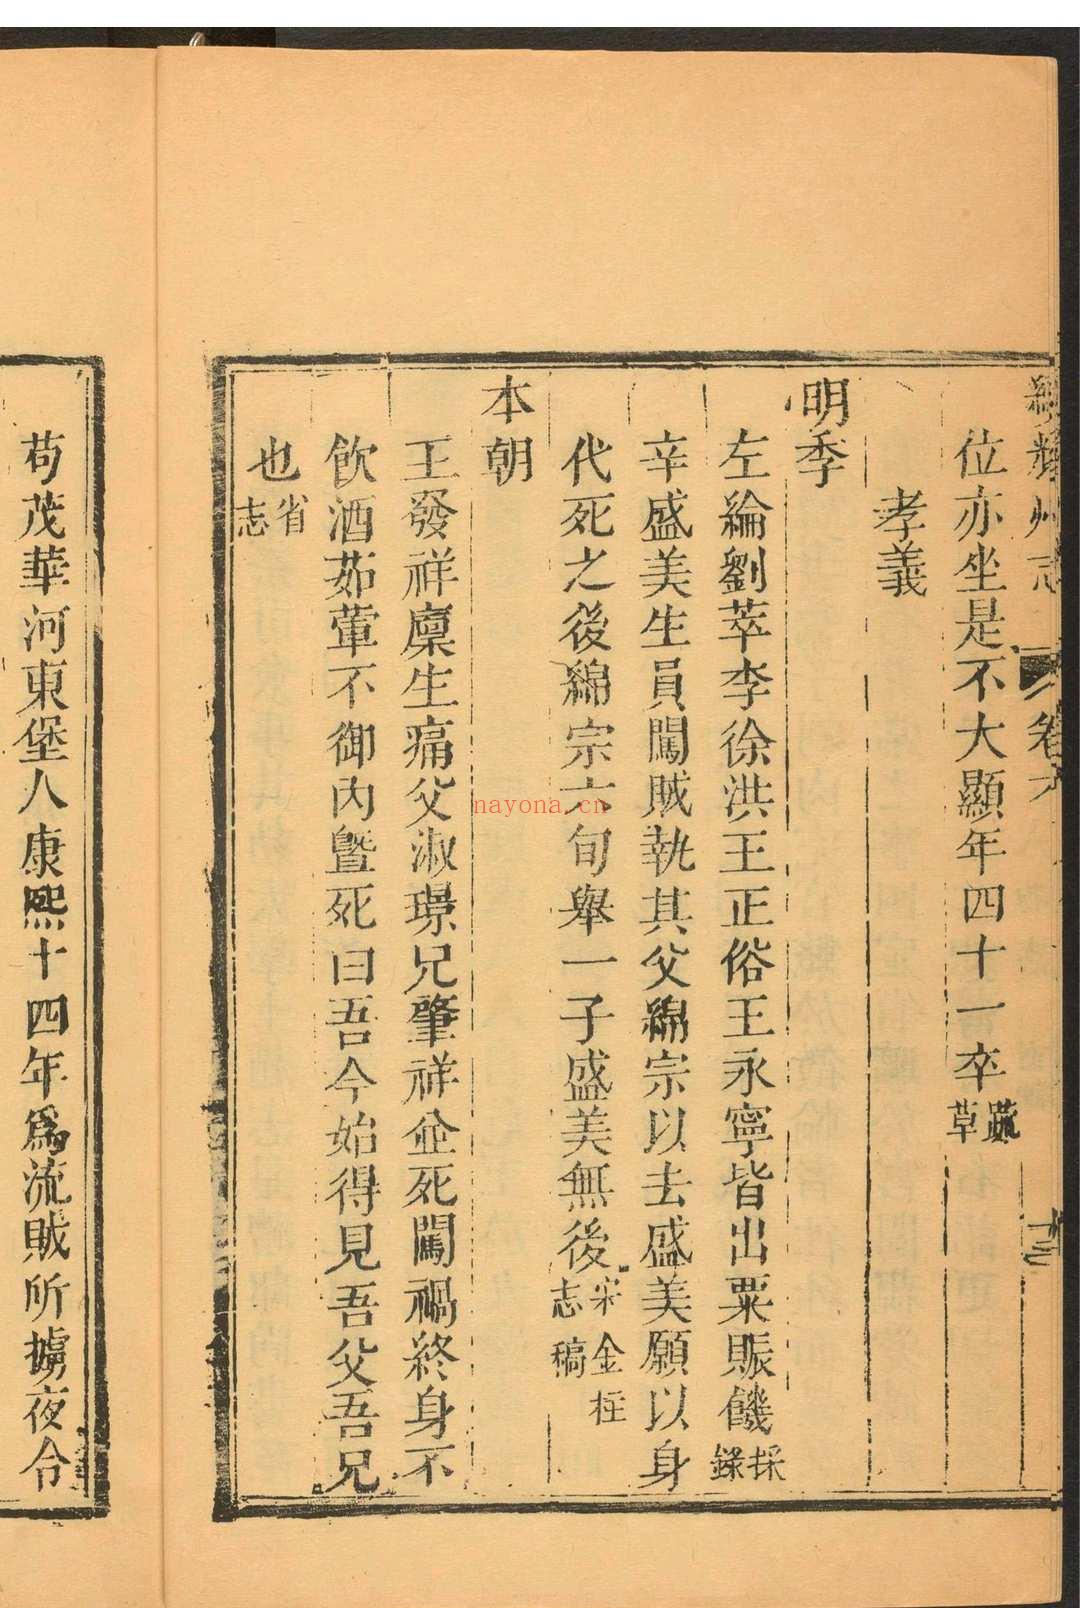 續耀州志 卷六 十三
位亦坐是不大顯年四十一卒蔬草
孝義
明季
左綸劉萃李徐洪王正俗王永寧皆出粟賑饑採錄
辛盛美生員闖賊執其父綿宗以去盛美願以身
代死之後綿宗六旬舉一子盛美無後宋金柱志稿
本朝
王發祥廩生痛父淑璟兄肇祥並死闖禍終身不
飲酒茹葷不御內曁死曰吾今始得見吾父吾兄
也省志
苟茂華河東堡人康熙十四年爲流賊所擄夜令
nayona.cn